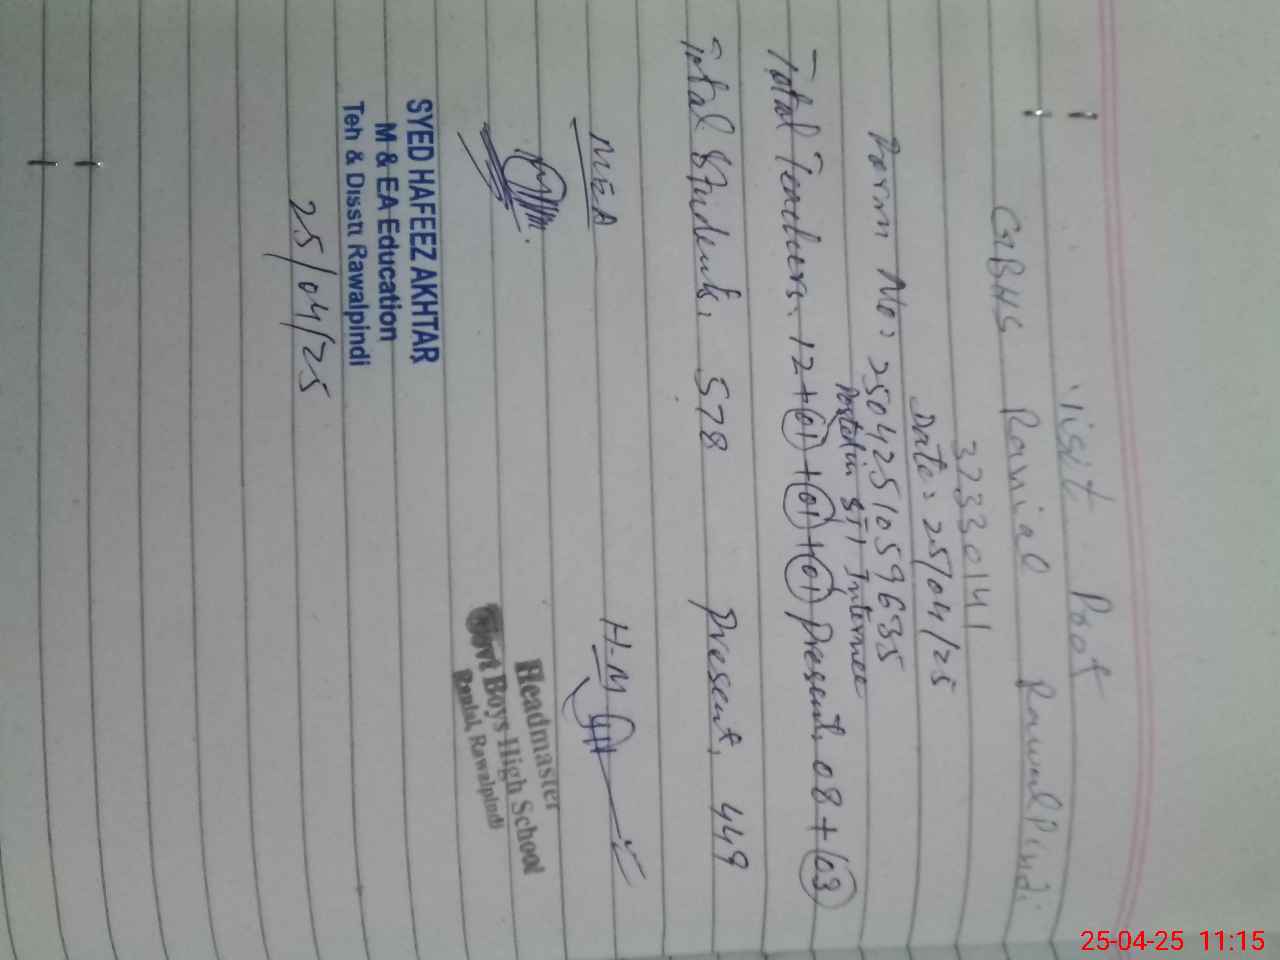 Visit Proof
GBHS Ranial Rawalpindi
37330141
Date: 25/04/25
Form No: 2504251059635
Posted in STI Internee
Total Teachers. 12+01+01+01 Present. 08+03
Total Students. 578 Present. 449
MEA H-M
Headmaster
Govt Boys High School
Ranial, Rawalpindi
SYED HAFEEZ AKHTAR
M & EA Education
Teh & Dissti Rawalpindi
25/04/25
25-04-25 11:15